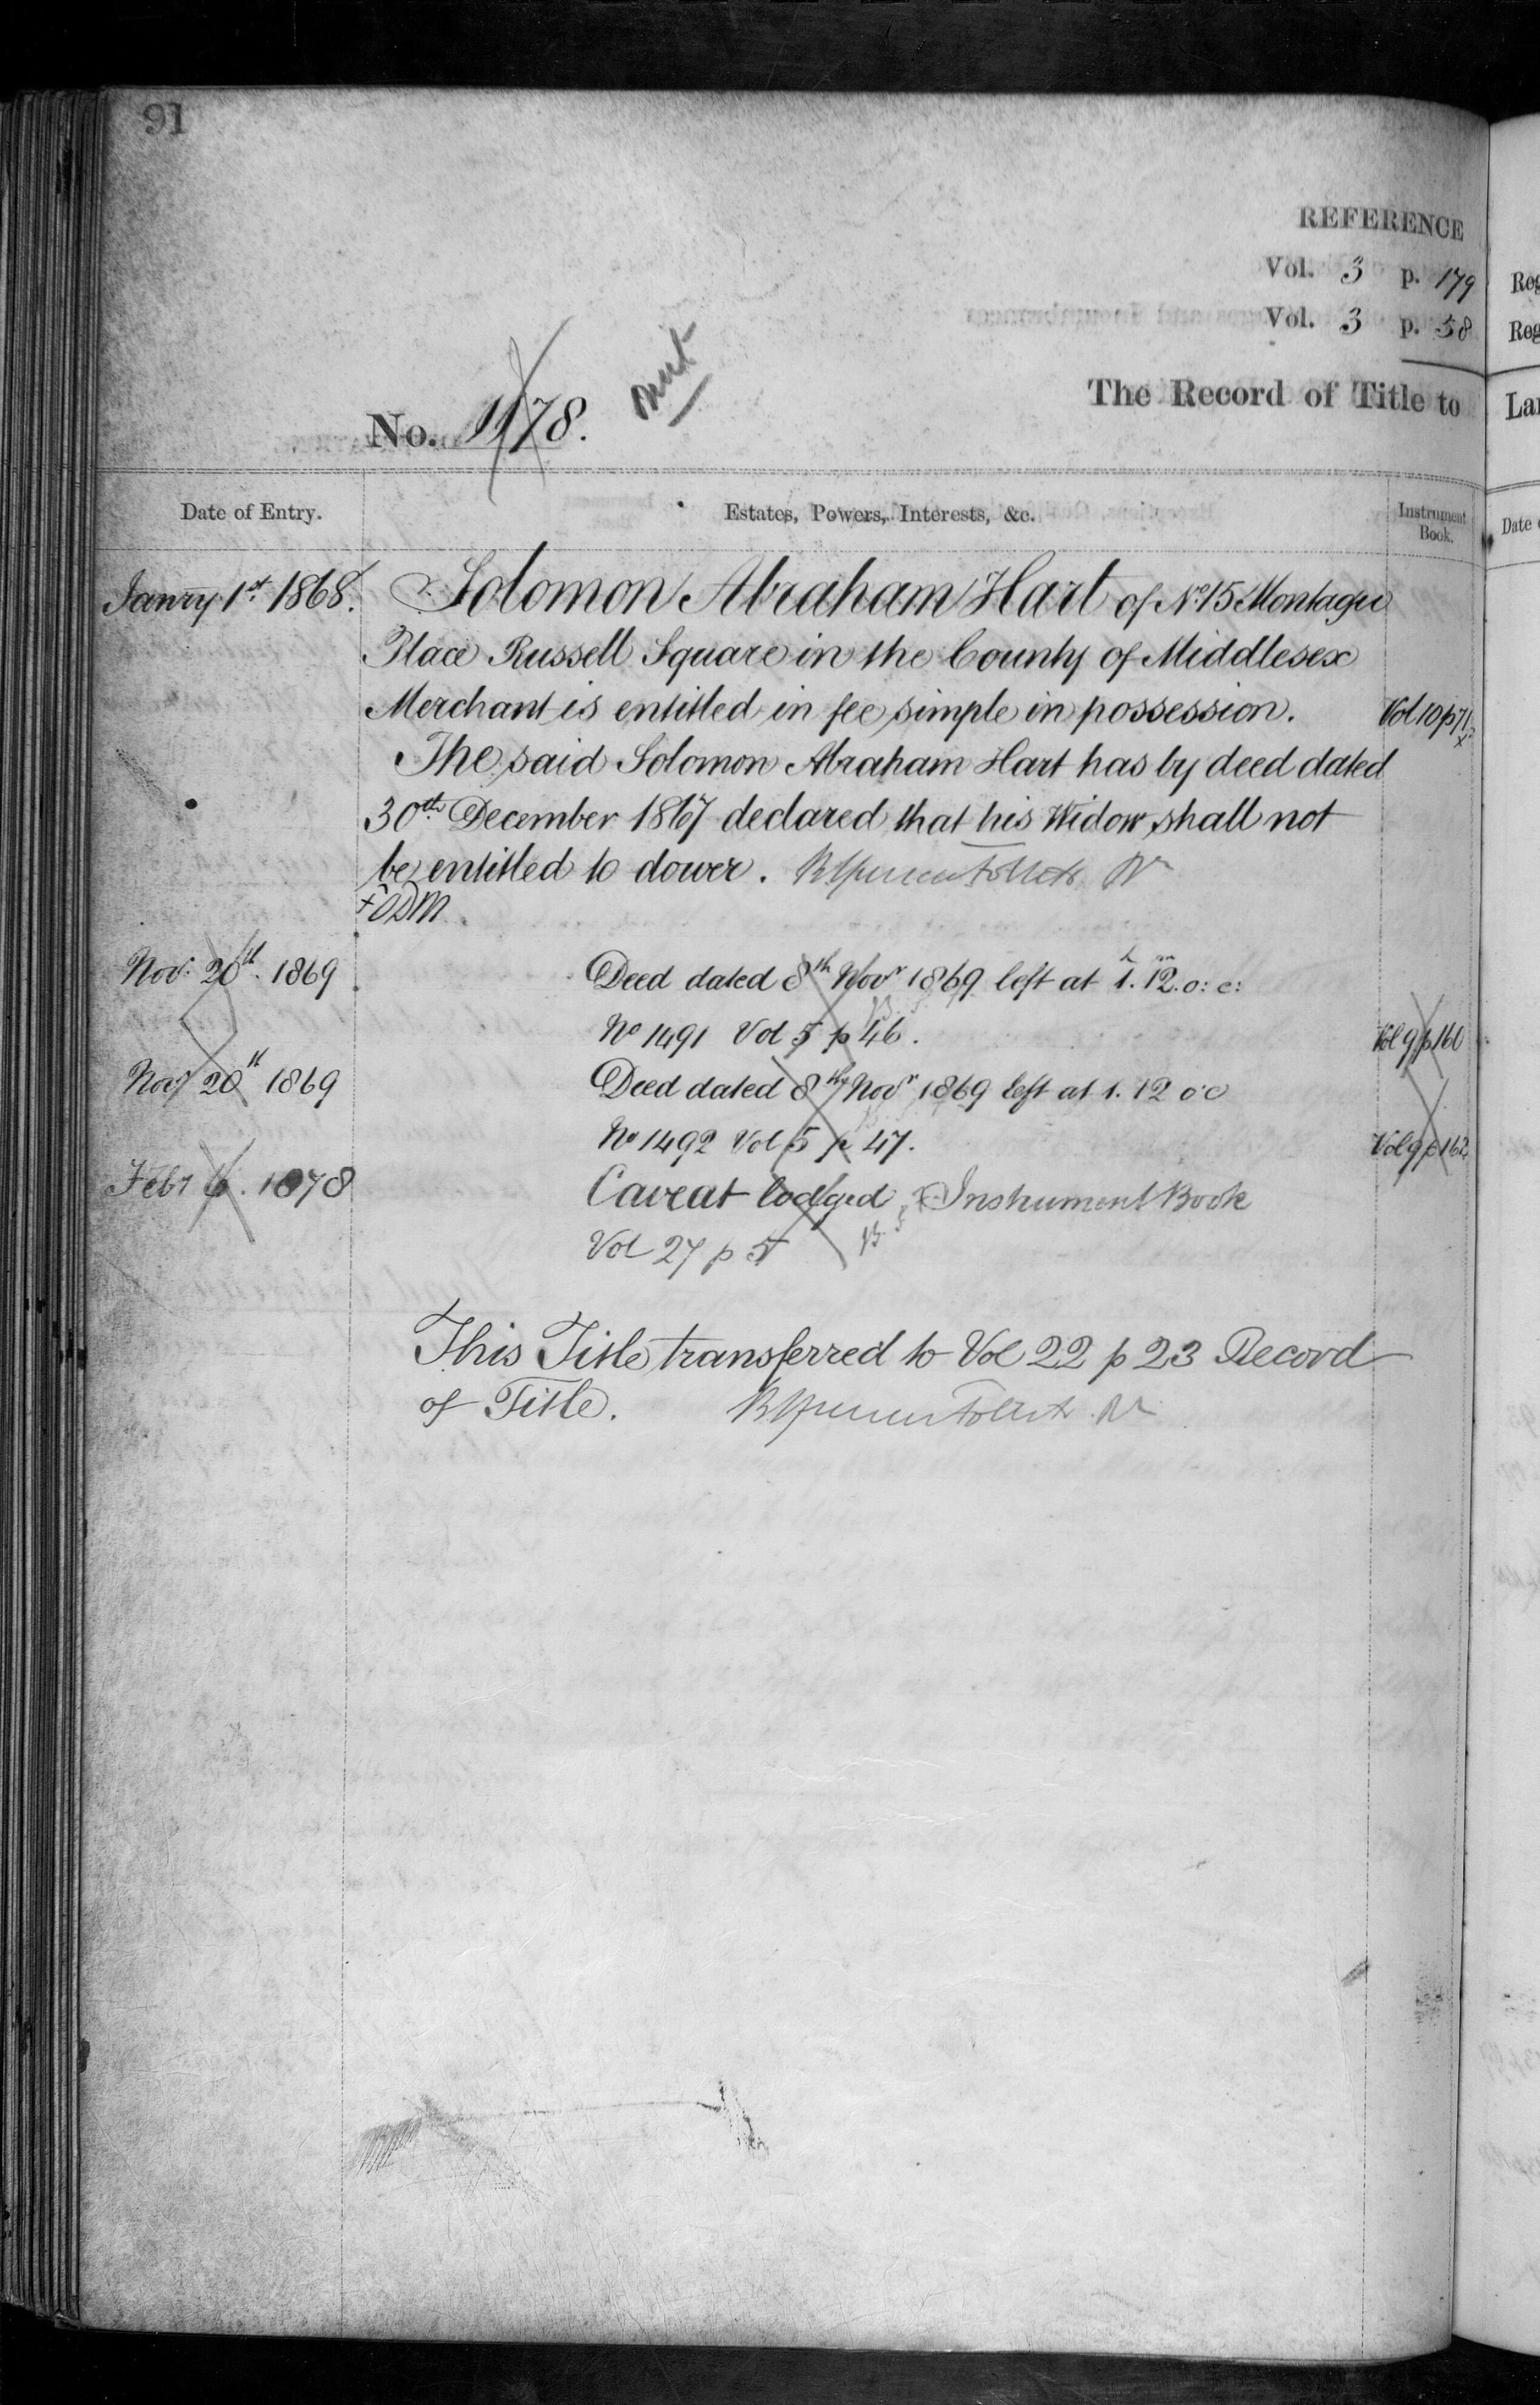 91
REFERENCE
Vol. 3 p. 179
Vol. 3 p. 58
No. 1178.
The Record of Title to
Date of Entry. Estates, Powers, Interests, &c. Instrument Book.
Janry 1st 1868. Solomon Abraham Hart of No 15 Montagu
Place Russell Square in the County of Middlesex
Merchant is entitled in fee simple in possession. Vol 10 p 71
The said Solomon Abraham Hart has by deed dated
30th December 1867 declared that his Widow shall not
be entitled to dower.
Nov: 20th. 1869 Deed dated 8th Novr 1869 left at 1h. 12m. o: c:
No 1491 Vol 5 p 46. Vol 9 p 160
Nov 20th 1869 Deed dated 8th Novr 1869 left at 1. 12 o'c
No 1492 Vol 5 p 47. Vol 9 p 162
Feby 6. 1878 Caveat lodged Instrument Book
Vol 27 p 5
This Title transferred to Vol 22 p 23 Record
of Title.
Reg
Reg
Lan
Date